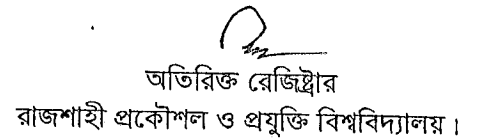 অতিরিক্ত রেজিষ্ট্রার
রাজশাহী প্রকৌশল ও প্রযুক্তি বিশ্ববিদ্যালয়।